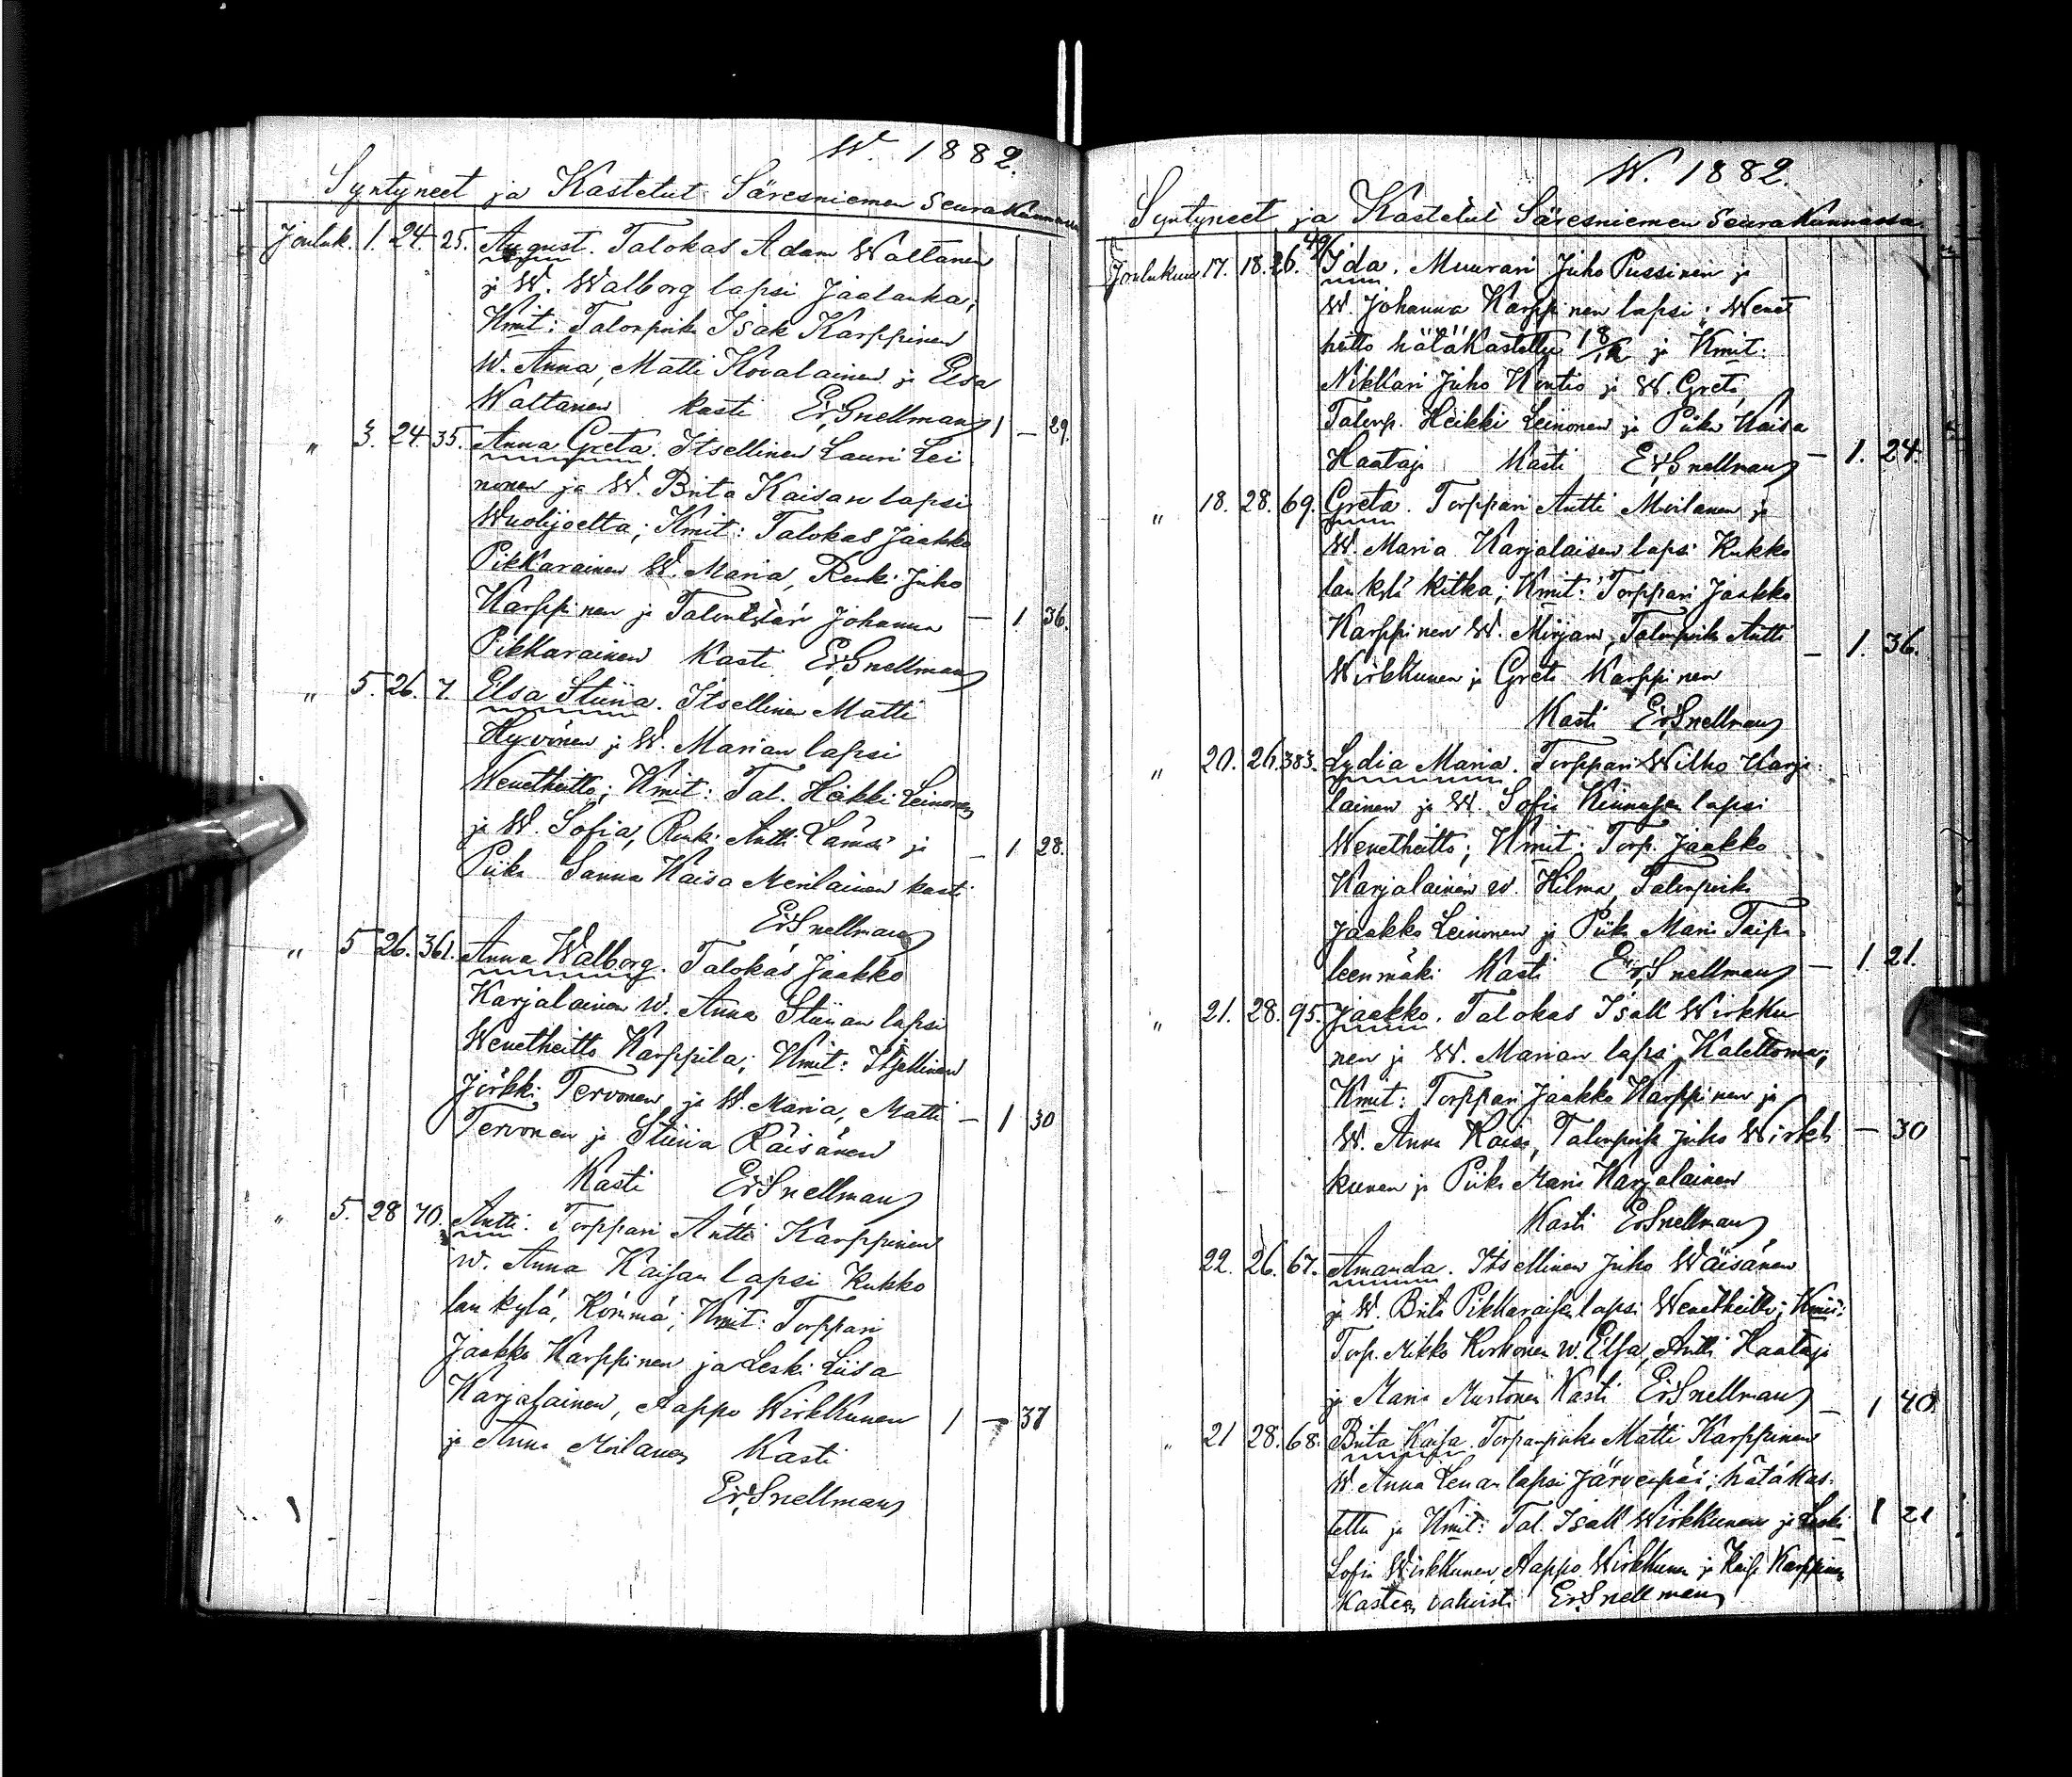 W. 1882.
Syntyneet ja Kastetut Säresniemen Seurakunnassa
Jouluk. 1. 24. 25. August. Talokas Adam Waltanen
ja W. Walborg lapsi Jaalanka;
Kmit: Talonpoik Isak Karppinen
W. Anna, Matti Kovalainen ja Elsa
Waltanen kasti Er. Snellman 1 — 29.
" 3. 24. 35. Anna Greta. Itsellinen Lauri Lei
nonen ja W. Brita Kaisan lapsi
Wuolijoelta; Kmit: Talokas Jaakko
Pikkarainen W. Maria, Renki Juho
Karppinen ja Talontytär Johanna — 1. 36.
Pikkarainen Kasti Er. Snellman
" 5. 26. 7. Elsa Stiina. Itsellinen Matti
Hyvönen ja W. Marian lapsi
Wenetheitto; Kmit: Tal. Heikki Leinonen
ja W. Sofia, Renki Antti Lämsä ja — 1 28.
Piika Sanna Kaisa Merilainen kasti
Er Snellman
" 5 26. 361. Anna Walborg. Talokas Jaakko
Karjalainen W. Anna Stiinan lapsi
Wenetheitto Karppila; Kmit: Itsellinen
Jörkki Tervonen ja W. Maria, Matti — 1 30
Tervonen ja Stiina Räisänen
Kasti Er Snellman
" 5. 28 70. Antti. Torppari Antti Karppinen
W. Anna Kaisan lapsi Kukko
lan kylä, Kömmä; Kmit: Torppari
Jaakko Karppinen ja Leski Liisa
Karjalainen, Aappo Wirkkunen 1 — 37
ja Anna Moilanen Kasti
Er. Snellman
W. 1882.
Syntyneet ja Kastetut Säresniemen Seurakunnassa.
Joulukuu 17. 18. 26. 49/ Ida. Muurari Juho Pussinen ja
W. Johanna Karppinen lapsi; Wenet
heitto hätäkastettu 18/12 ja Kmit:
Nikkari Juho Kontio ja W. Greta,
Talonp. Heikki Leinonen ja Piika Kaisa
Haataja Kasti Er Snellman — 1. 24.
" 18. 28. 69. Greta. Torppari Antti Moilanen ja
W. Maria Karjalaisen lapsi Kukko
lan kylä kitka; Kmit: Torppari Jaakko
Karppinen W. Mirjam, Talonpoik Antti — 1. 36.
Wirkkunen ja Greta Karppinen
Kasti Er Snellman
" 20. 26. 383. Lydia Maria. Torppari Wilho Karja
lainen ja W. Sofia Kinnusen lapsi
Wenetheitto; Kmit: Torp. Jaakko
Karjalainen W. Hilma, Talonpoika
Jaakko Leinonen ja Piika Maria Taipa
leenmäki Kasti Er. Snellman — 1. 21.
" 21. 28. 95. Jaakko. Talokas Isakk Wirkku
nen ja W. Marian lapsi Kalettoma;
Kmit: Torppari Jaakko Karppinen ja
W. Anna Kaisa, Talonpoik Juho Wirk — 30
kunen ja Piika Maria Karjalainen
Kasti Er Snellman
22. 26. 67. Amanda. Itsellinen Juho Wäisänen
ja W. Brita Pikkaraisen lapsi Wenetheitto; Kmit:
Torp. Mikko Korhonen W. Elsa, Antti Haataja
ja Maria Mustonen Kasti Er Snellman — 1 40.
" 21 28. 68. Brita Kaisa. Torpanpoika Matti Karppinen
W. Anna Leenan lapsi Järvenpää; hätäkas-
tettu ja Kmit: Tal. Isakk Wirkkunen ja Leski 1 21
Sofia Wirkkunen, Aappo Wirkkunen ja Kaisa Karppinen
Kasteen vahvisti Er. Snellman